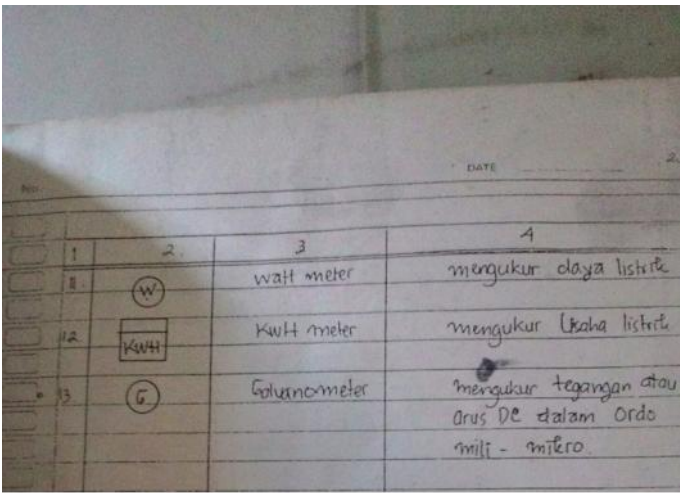 No.
DATE
2.
1 2. 3 4
11. W Watt meter mengukur daya listrik
12 KWH KWH meter mengukur Usaha listrik
13 G Galvanometer mengukur tegangan atau
arus DC dalam Ordo
mili - mikro.